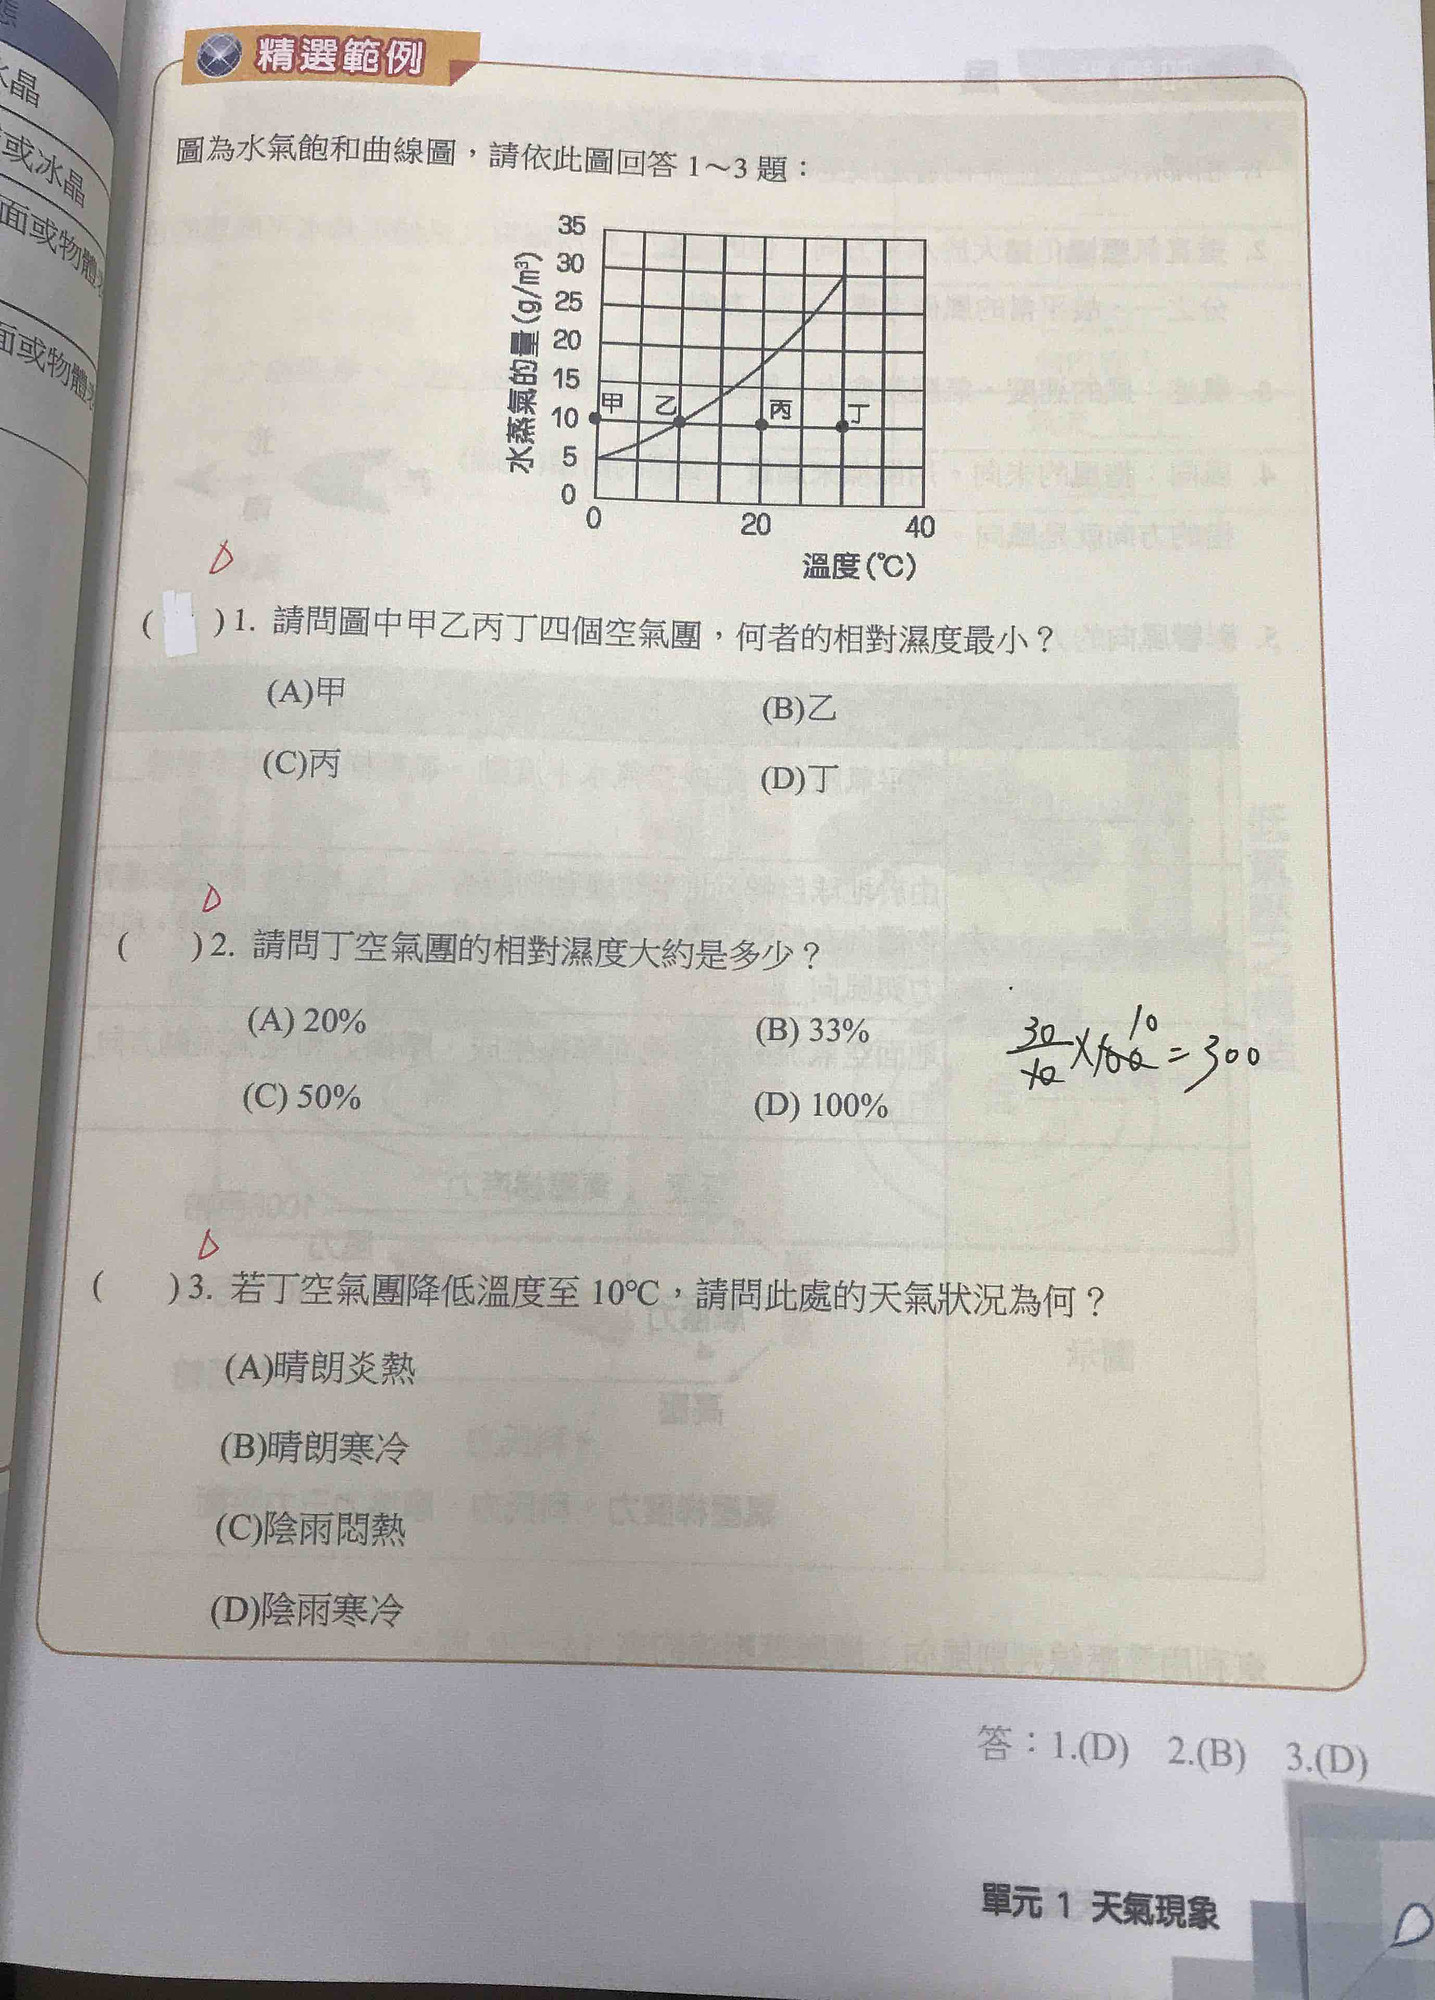 態
水晶
或冰晶
面或物體
面或物體表
精選範例
圖為水氣飽和曲線圖，請依此圖回答 1～3 題：
水蒸氣的量(g/m³)
35
30
25
20
15
10
5
0
甲 乙 丙 丁
0 20 40
溫度(℃)
D
( ) 1. 請問圖中甲乙丙丁四個空氣團，何者的相對濕度最小？
(A)甲 (B)乙
(C)丙 (D)丁
D
( ) 2. 請問丁空氣團的相對濕度大約是多少？
(A) 20% (B) 33%
(C) 50% (D) 100%
30/10 × 100 = 300
10
D
( ) 3. 若丁空氣團降低溫度至 10℃，請問此處的天氣狀況為何？
(A)晴朗炎熱
(B)晴朗寒冷
(C)陰雨悶熱
(D)陰雨寒冷
答：1.(D) 2.(B) 3.(D)
單元 1 天氣現象